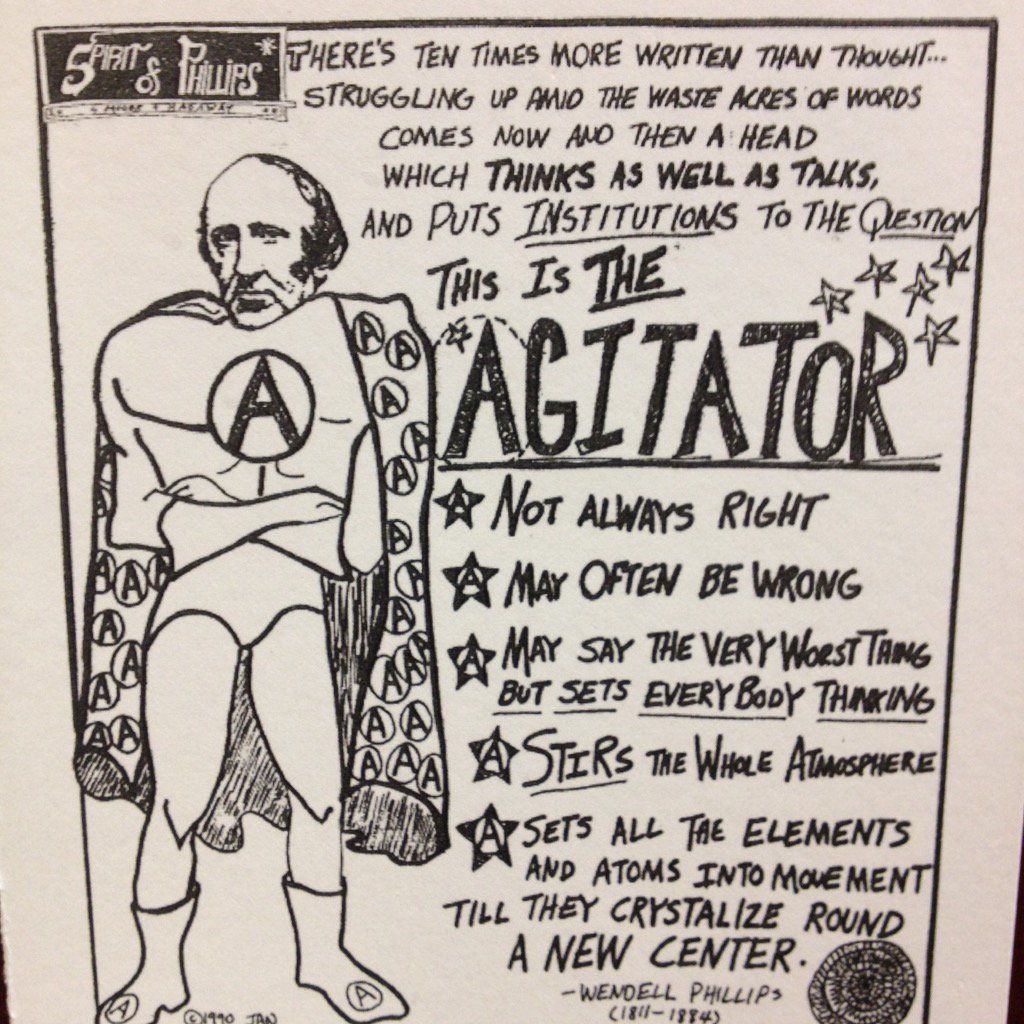 SPIRIT
of PHILLIPS *
THERE'S TEN TIMES MORE WRITTEN THAN THOUGHT...
STRUGGLING UP AMID THE WASTE ACRES OF WORDS
COMES NOW AND THEN A HEAD
WHICH THINKS AS WELL AS TALKS,
AND PUTS INSTITUTIONS TO THE QUESTION
THIS IS THE
AGITATOR
A NOT ALWAYS RIGHT
A MAY OFTEN BE WRONG
A MAY SAY THE VERY WORST THING
BUT SETS EVERYBODY THINKING
A STIRS THE WHOLE ATMOSPHERE
A SETS ALL THE ELEMENTS
AND ATOMS INTO MOVEMENT
TILL THEY CRYSTALIZE ROUND
A NEW CENTER.
-WENDELL PHILLIPS
(1811-1884)
A
©1990 JAN